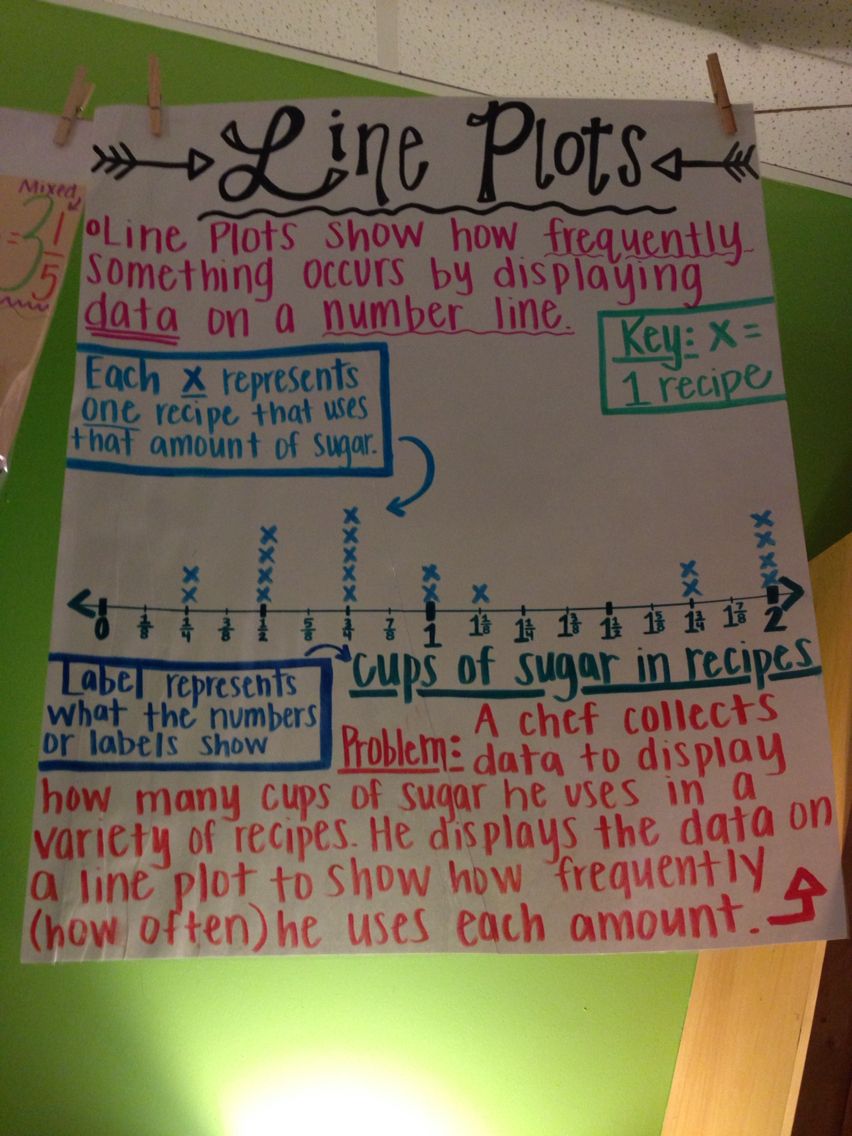 Mixed
= 3 1/5
Line Plots
Line Plots show how frequently
something occurs by displaying
data on a number line.
Key: x =
1 recipe
Each x represents
one recipe that uses
that amount of sugar.
x x x x x x x x x x x x x x x x x x x x
0 1/8 1/4 3/8 1/2 5/8 3/4 7/8 1 1 1/8 1 1/4 1 3/8 1 1/2 1 5/8 1 3/4 1 7/8 2
cups of sugar in recipes
Label represents
what the numbers
or labels show
Problem: A chef collects
data to display
how many cups of sugar he uses in a
variety of recipes. He displays the data on
a line plot to show how frequently
(how often) he uses each amount.